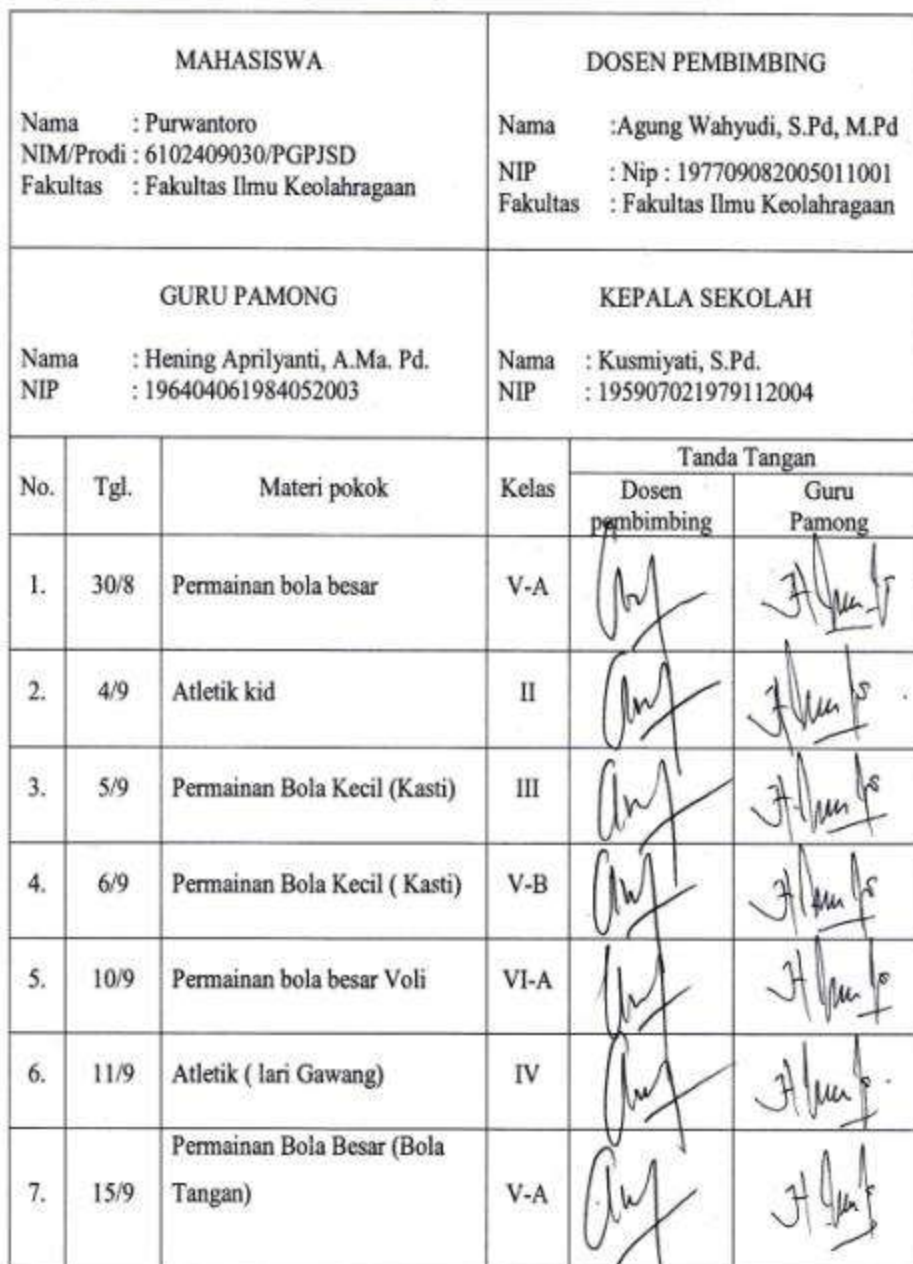 MAHASISWA
Nama : Purwantoro
NIM/Prodi : 6102409030/PGPJSD
Fakultas : Fakultas Ilmu Keolahragaan
DOSEN PEMBIMBING
Nama :Agung Wahyudi, S.Pd, M.Pd
NIP : Nip : 197709082005011001
Fakultas : Fakultas Ilmu Keolahragaan
GURU PAMONG
Nama : Hening Aprilyanti, A.Ma. Pd.
NIP : 196404061984052003
KEPALA SEKOLAH
Nama : Kusmiyati, S.Pd.
NIP : 195907021979112004
No. Tgl. Materi pokok Kelas Tanda Tangan
Dosen Guru
pembimbing Pamong
1. 30/8 Permainan bola besar V-A
2. 4/9 Atletik kid II
3. 5/9 Permainan Bola Kecil (Kasti) III
4. 6/9 Permainan Bola Kecil ( Kasti) V-B
5. 10/9 Permainan bola besar Voli VI-A
6. 11/9 Atletik ( lari Gawang) IV
Permainan Bola Besar (Bola
7. 15/9 Tangan) V-A